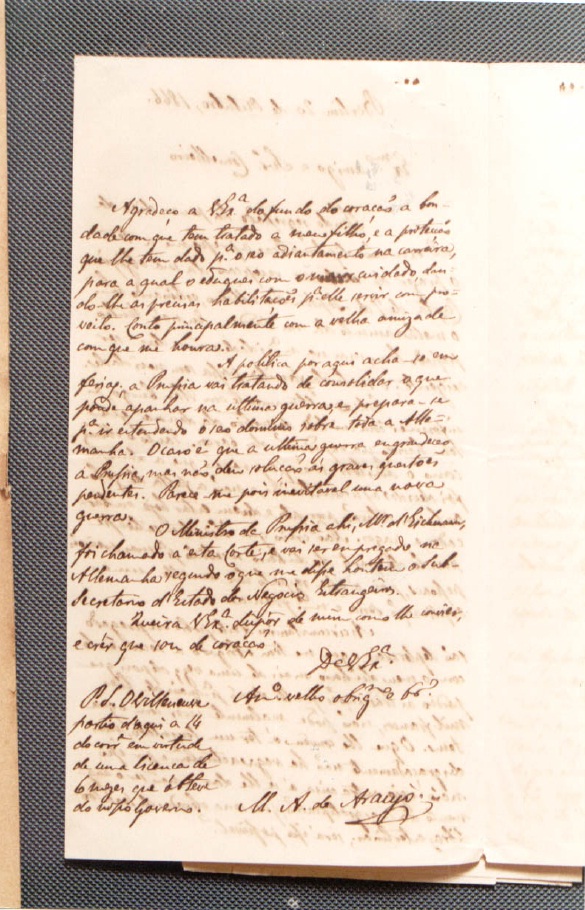 Agradeço a VEx.ª do fundo do coração a bon-
dade com que tem tratado a meu filho, e a protecção
que lhe tem dado p.ª o seo adiantamento na carreira,
para a qual o eduquei com o maior cuidado dan-
do-lhe as precisas habilitações p.ª elle servir com pro-
veito. Conto principalmente com a velha amizade
com que me honra.
A politica por aqui acha-se em
ferias. a Prussia vai tratando de consolidar o que
poude apanhar na ultima guerra, e prepara-se
p.ª ir estendendo o seo dominio sobre toda a Alle-
manha. O caso é que a ultima guerra engrandeceo
a Prussia, mas não deu solução ás graves questões
pendentes. Parece-me pois inevitavel uma nova
guerra.
O Ministro da Prussia ahi, Mr. d'Eichmann,
foi chamado a esta Corte, e vai ser empregado na
Allemanha segundo o que me disse hontem o Sub-
Secretario d'Estado dos Negocios Estrangeiros.
Queira VEx.ª dispor de mim como lhe convier,
e crêr que sou de coração
De VEx.ª
Am.º velho obrig.º
P.S. O Villeneuve
partio d'aqui a 14
do corr.e em virtude
de uma licença de
6 mezes que obteve
do nosso Governo.
M. A. de Araujo.